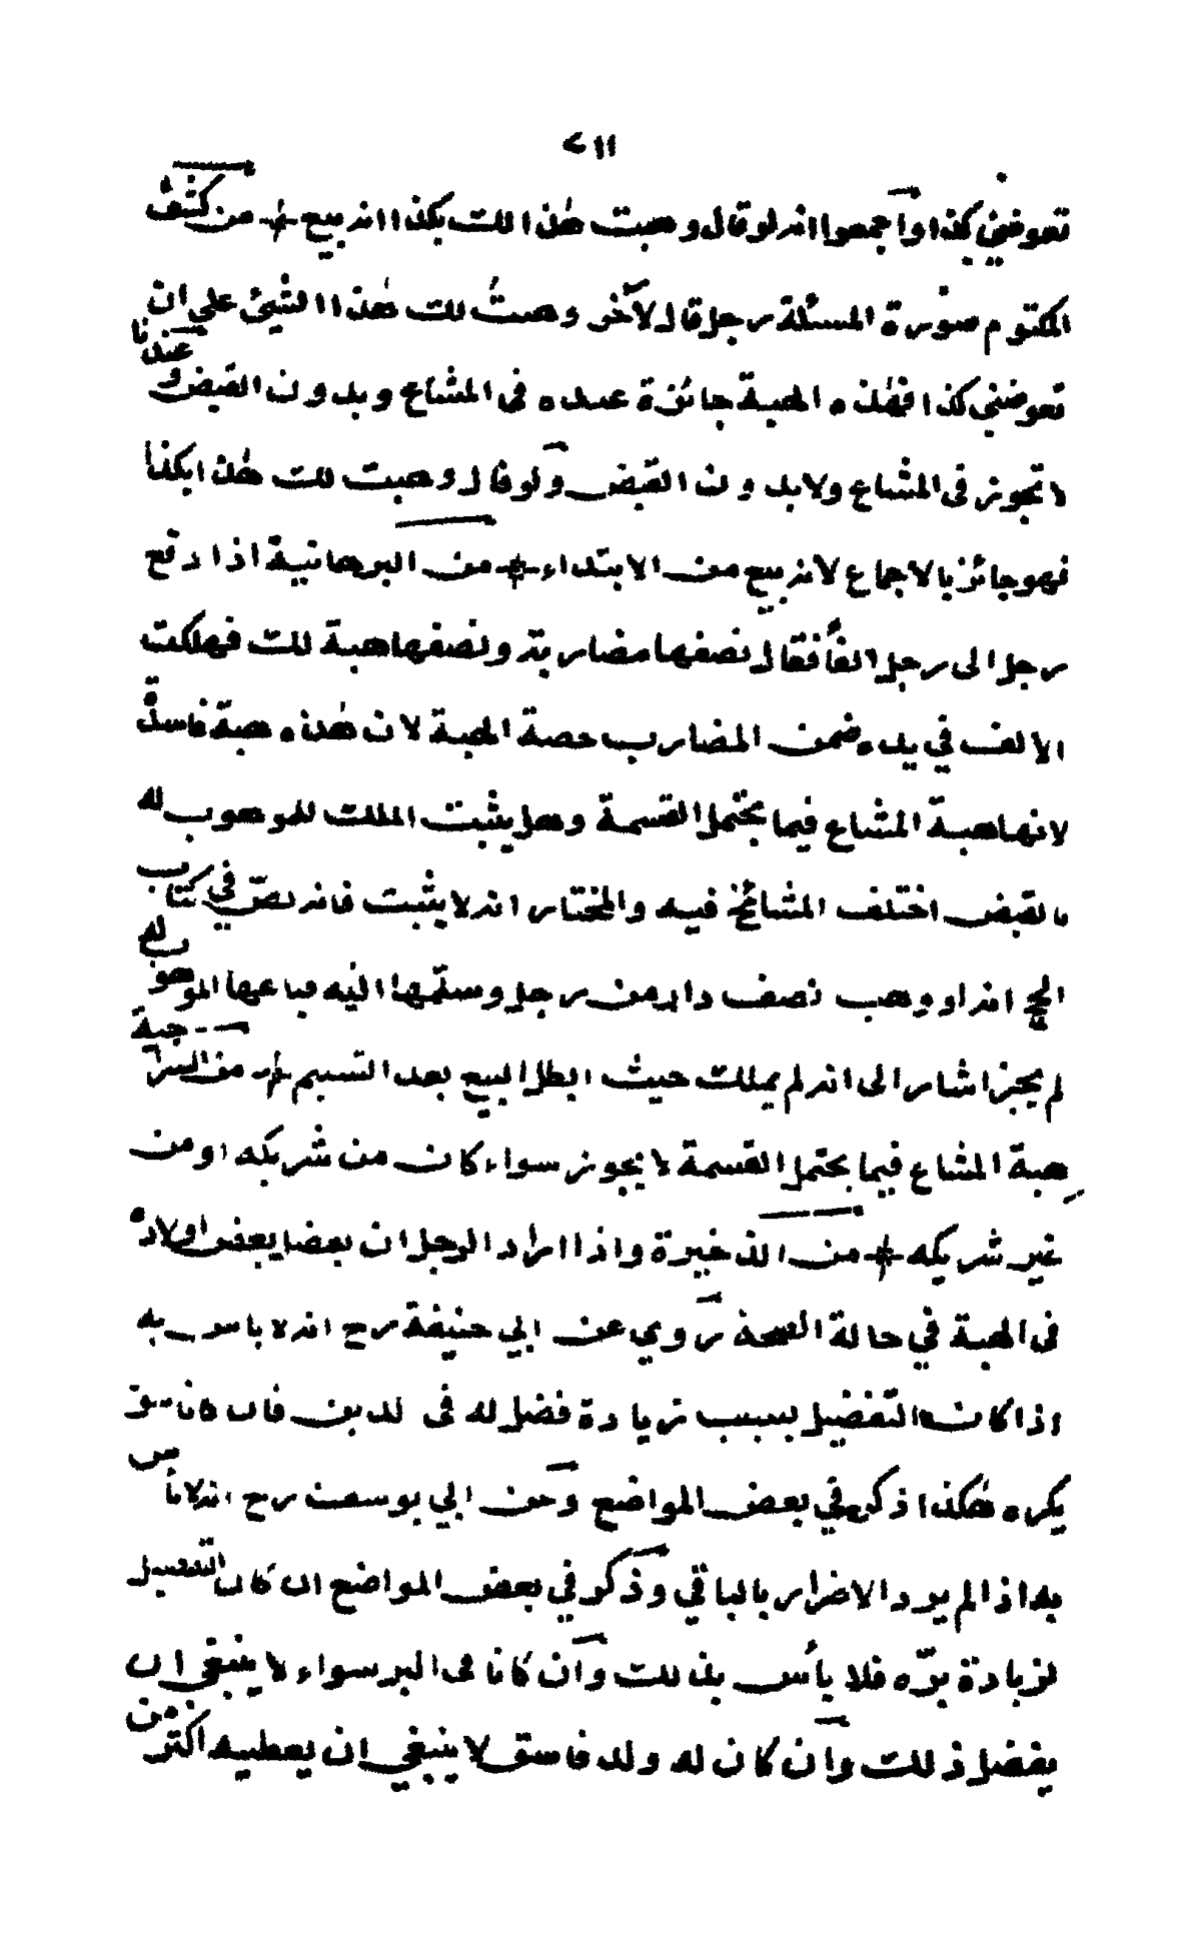 ٧١١
تعوضني كذا واجمعوا انه لو قال وهبت هٰذا لك بكذا انه بيع من كشف
المكتوم صورة المسئلة رجل قال لآخر وهبتُ لك هٰذا الشيئ على ان
تعوضني كذا فهٰذه الهبة جائزة عنده فى المشاع وبدون القبض و عندنا
لا تجوز فى المشاع ولا بدون القبض ولو قال وهبت لك هٰذا بكذا
فهو جائز بالاجماع لانه بيع من الابتداء من البرهانية اذا دفع
رجل الى رجل الفاً فقال نصفها مضاربة ونصفها هبة لك فهلكت
الالف في يده ضمن المضارب حصة الهبة لان هٰذه هبة فاسدة
لانها هبة المشاع فيما يحتمل القسمة وهل يثبت الملك للموهوب له
بالقبض اختلف المشائخ فيه والمختار انه لا يثبت فانه نصّ في كتاب
انه لو وهب نصف داره من رجل وسلّمها اليه فباعها الموهوب له
لم يجز اشار الى انه لم يملك حيث ابطل البيع بعد التسيم من السراجية
هبة المشاع فيما يحتمل القسمة لا يجوز سواء كان من شريكه او من
غير شريكه من الذخيرة واذا اراد الرجل ان بعضا بعض اولاده
فى الهبة في حالة الصحة روي عن ابي حنيفة رح انه لا باس به
اذا كان التفضيل بسبب زيادة فضل له فى لدين فان كانا سوا
يكره هٰكذا ذكر في بعض المواضع وعن ابي يوسف رح انه لا باس
به اذا لم يرد الاضرار بالباقي وذكر في بعض المواضع ان كان التفضيل
لزيادة برّه فلا بأس بذلك وان كانا فى البر سواء لا ينبغي ان
يفضل ذلك وان كان له ولد فاسق لا ينبغي ان يعطيه اكثر من